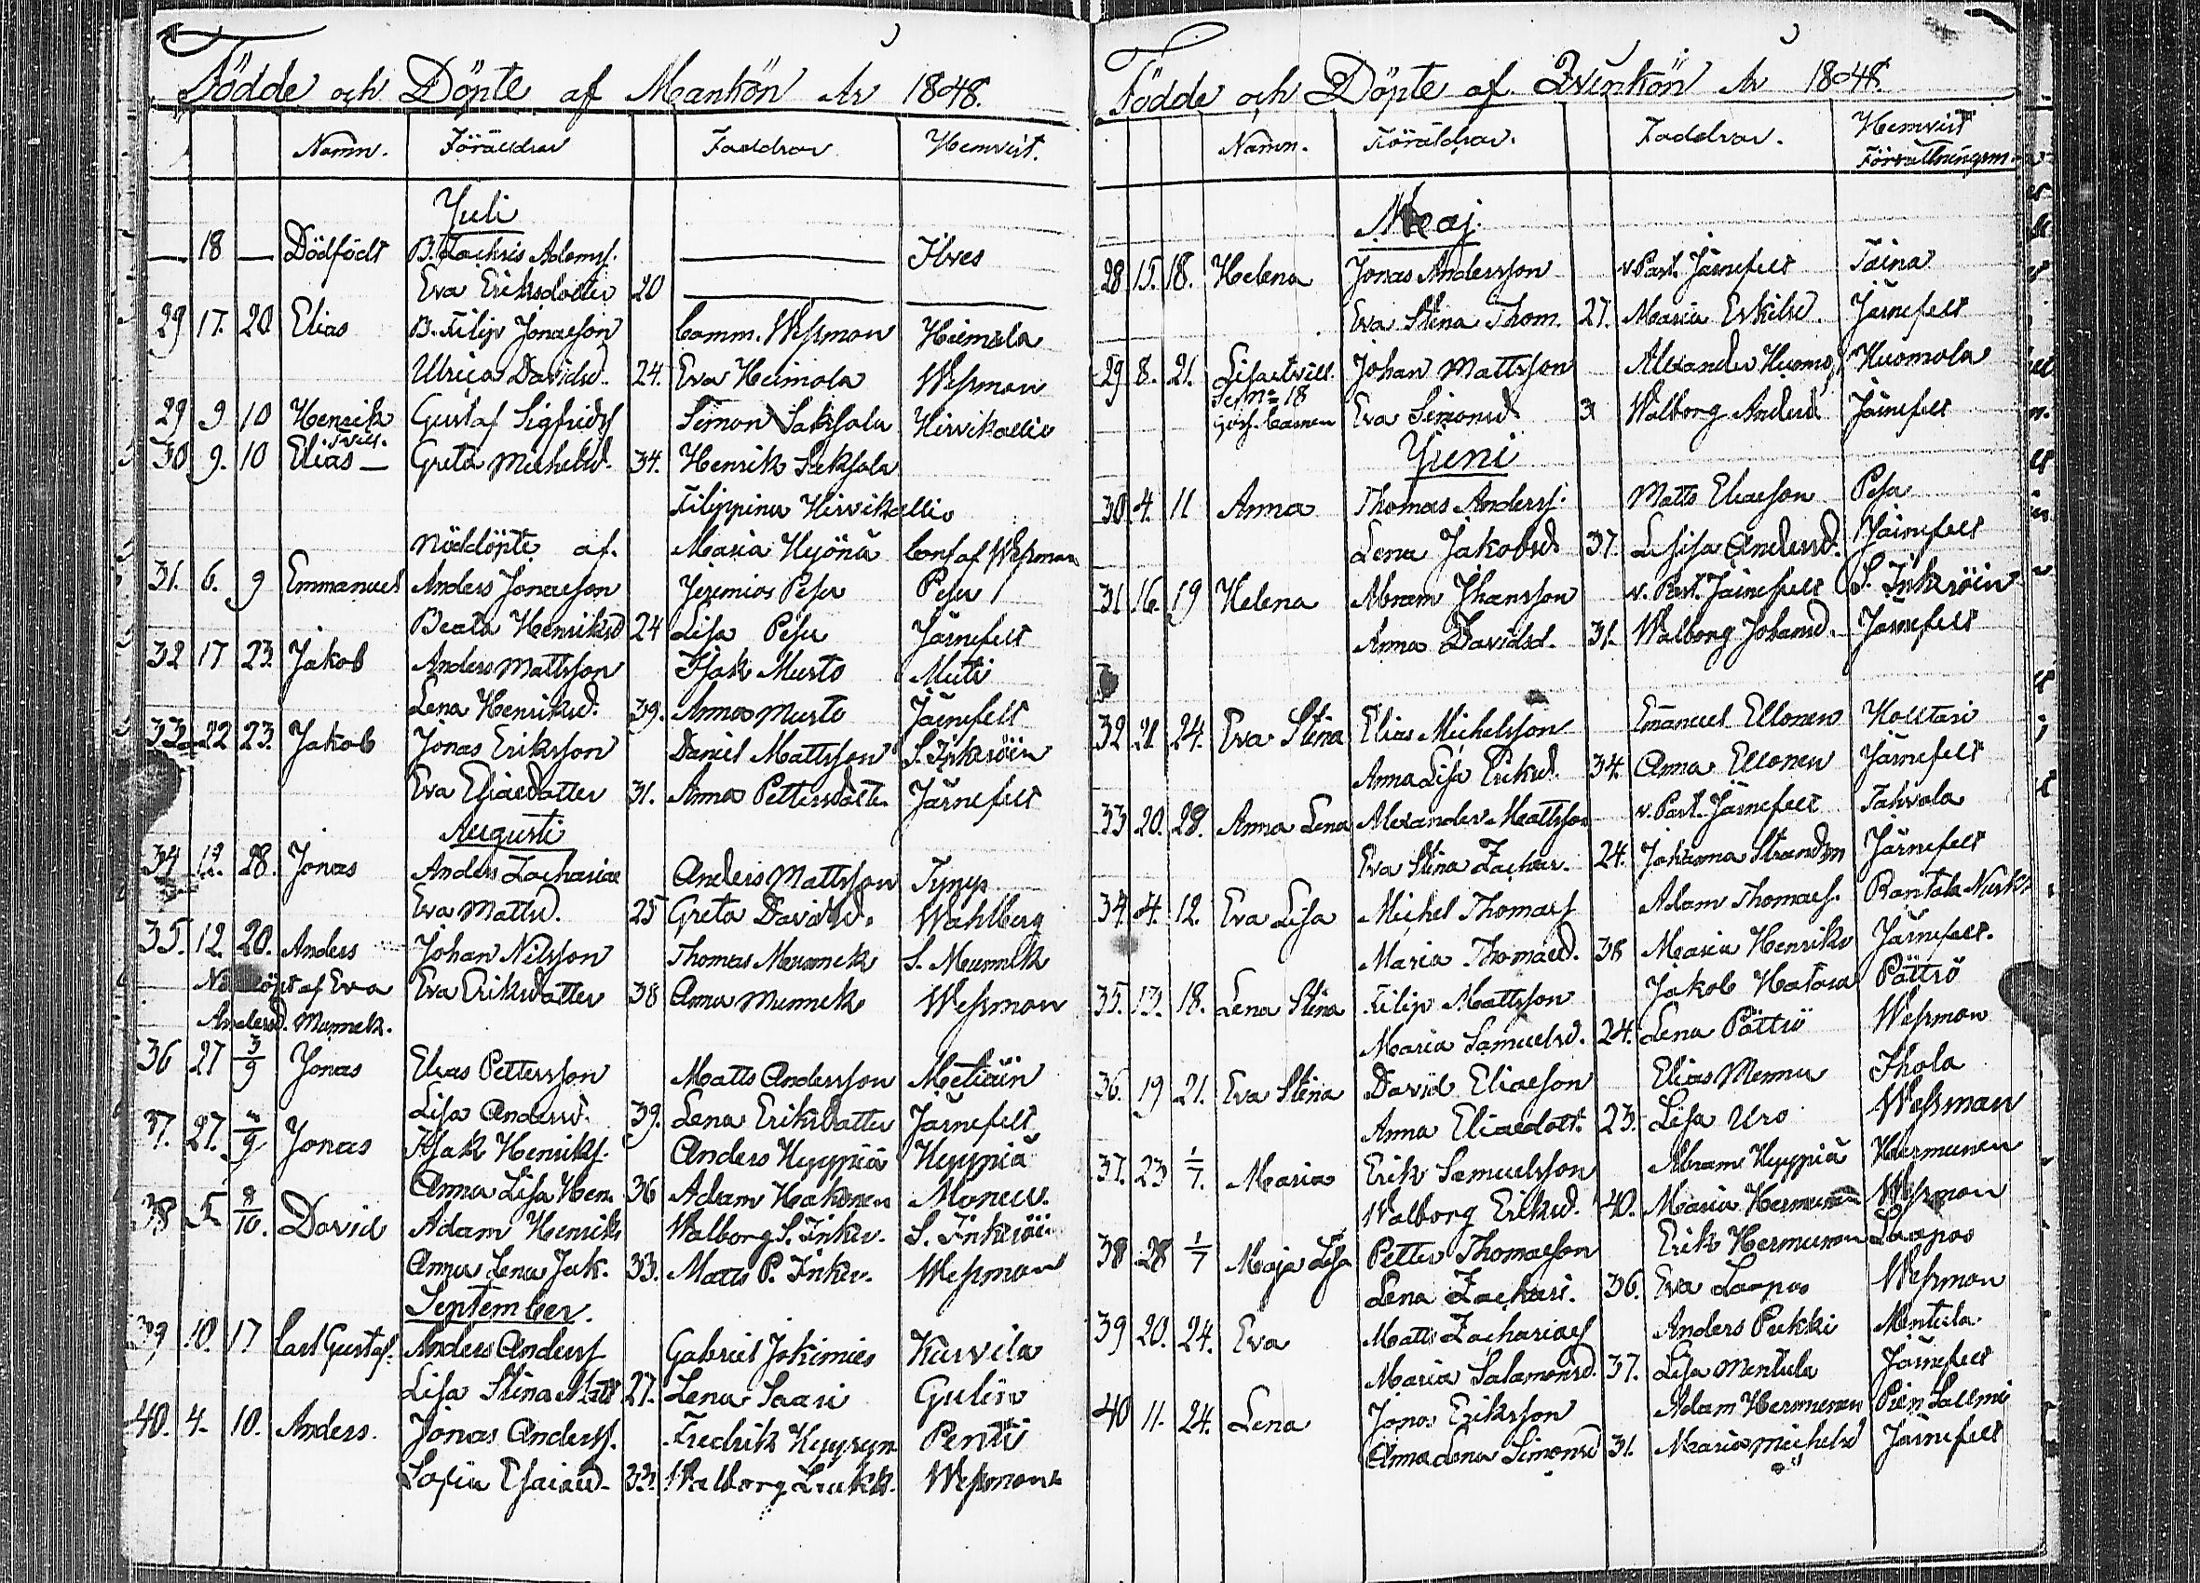 Födde och Döpte af Mankön År 1848.
Namn. Föräldrar Faddrar Hemvist.
Juli
— 18 — Dödfödt B. Zachris Adamss. Ilves
Eva Eriksdotter 20
29 17. 20 Elias B. Filip Jonasson Comm. Wessman Heimola
Ulrica Davidsd. 24. Eva Heimola Wessman
29 9 10 Henrik Gustaf Sigfrids Simon Saksala Hirvikallio
30 9. 10 Elias tvill. Greta Michelsd. 34. Henrik Saksala
Filippina Hirvikallio
nöddöpte af. Maria Hyönä Conf af Wessman
31. 6. 9 Emmanuel Anders Jonasson Jeremias Pesu Pesu
Beata Henriksd 24 Lisa Pesu Järnefelt
32 17 23. Jakob Anders Mattsson Isak Musto Muti
Lena Henriksd. 39. Anna Musto Järnefelt
33 22 23. Jakob Jonas Eriksson Daniel Mattsson S. Inkeröin
Eva Eliasdatter 31. Anna Pettersdotter Järnefelt
Augusti
34 12. 28. Jonas Anders Zacharias Anders Mattsson
Eva Mattsd. 25 Greta Davidsd. Wahlberg
35. 12. 20. Anders Johan Nilsson Thomas Munnek S. Munnek
af Eva Eva Eriksdatter 38 Anna Munnek Wessman
Andersd. Munnek.
36 27 3/9 Jonas Elias Pettersson Matts Andersson Metiäin
Lisa Andersd. 39. Lena Eriksdatter Järnefelt
37. 27. /9 Jonas Isak Henrikss. Anders Hyypiä Hyypiä
Anna Lisa Hen. 36 Adam Hakonen Monew.
38 5 8/10. David Adam Henriks Walborg S. Inker. S. Inkeröin
Anna Lena Jak. 33. Matts P. Inker. Wessman
September.
39 10. 17 Carl Gustaf. Anders Anderss Gabriel Jokimies Kurvila
Lisa Stina Matts 27. Lena Saari Gulin
40. 4. 10. Anders. Jonas Anderss. Fredrik Pentti
Sofia Esaiasd. 33. Walborg Wessman
Födde och Döpte af Qvinkön År 1848.
Namn. Föräldrar. Faddrar. Hemvist
Förrättningsm.
Maj.
28 15. 18. Helena Jonas Andersson v. Past. Järnefelt Taina
Eva Stina Thom. 27. Maria Eskilsd. Järnefelt
29 8. 21. Lisa tvill. Johan Mattsson Alexander Huomo Huomola
Se No 18
Eva Simonsd. 31 Walborg Andersd. Järnefelt
Juni
30 4. 11 Anna Thomas Anderss. Matts Eliasson Pesa
Lena Jakobsd. 37. Lisa Andersd. Järnefelt
31 16. 19 Helena Abram Jhansson v. Past. Järnefelt S. Inkeröin
Anna Davidsd. 31. Walborg Johansd. Järnefelt
32 21 24. Eva Stina Elias Michelsson Emanuel Ellonen Holttari
Anna Lisa Eriksd. 34. Anna Ellonen Järnefelt
33 20. 28. Anna Lena Alexander Mattsson v. Past. Järnefelt Tahvola
Eva Stina Zachar. 24. Johanna Strandm Järnefelt
34. 4. 12. Eva Lisa Michel Thomass Adam Thomass. Rantala
Maria Thomasd. 38 Maria Henriks Järnefelt.
35. 13. 18. Lena Stina Filip Mattsson Jakob Hatara Pättiö
Maria Samuelsd. 24. Lena Pättiö Wessman
36. 19 21. Eva Stina David Eliasson Elias Mennu Ihola
Anna Eliasdott. 23. Lisa Uro Wessman
37. 23 1/7. Maria Erik Samuelsson Abram Hyypiä Hermunen
Walborg Eriksd. 40. Maria Hermunen Wessman
38 28 1/7 Maja Lisa Petter Thomasson Erik Hermunen Laapas
Lena Zachari. 36. Eva Laapas Wessman
39 20. 24. Eva Matts Zachariass Anders Pukki Mentula
Maria Salamonsd. 37. Lisa Mentula Järnefelt
40 11. 24. Lena Jonas Eriksson Adam Hermunen
Anna Lena Simonsd 31. Maria Michelsd Järnefelt